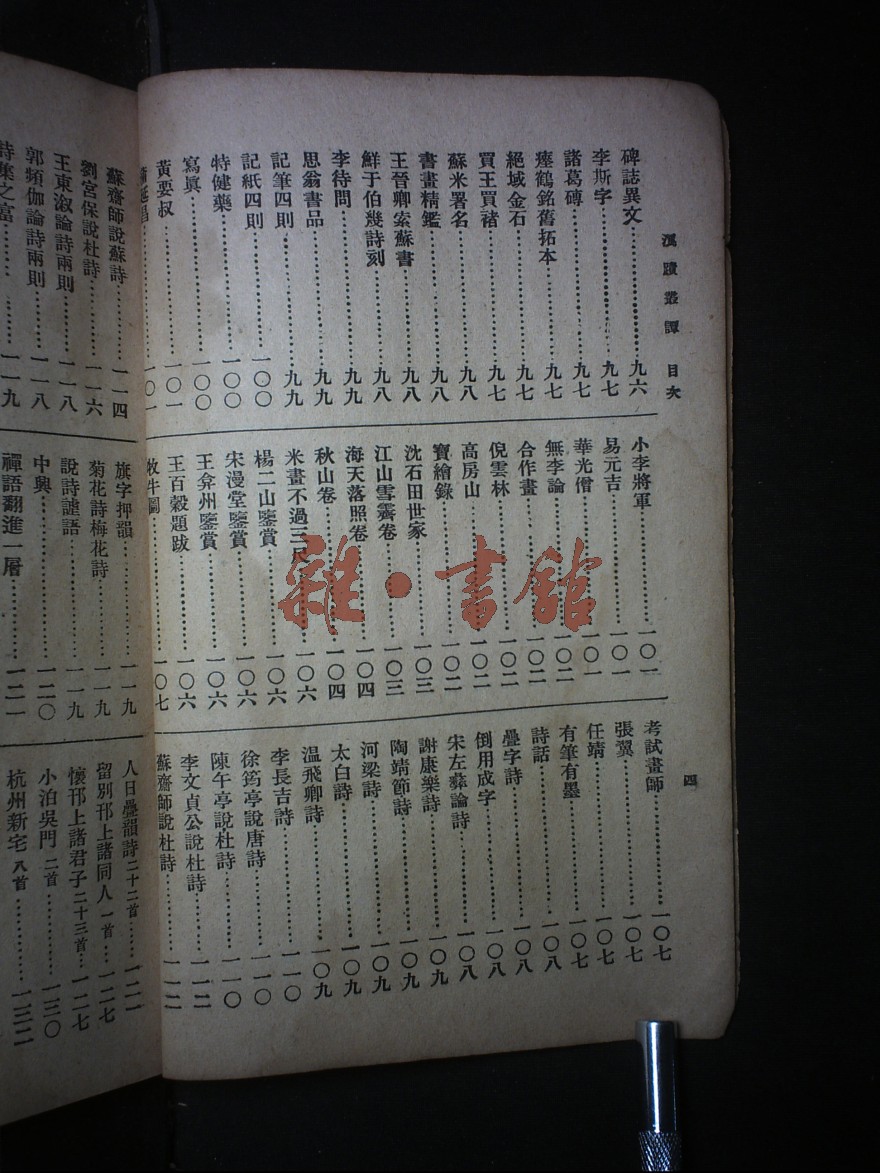 浪蹟叢譚 目次
四
碑誌異文……九六
李斯字……九七
諸葛磚……九七
瘞鶴銘舊拓本……九七
絕域金石……九七
買王買褚……九七
蘇米署名……九八
書畫精鑑……九八
王晉卿索蘇書……九八
鮮于伯幾詩刻……九八
李待問……九九
思翁書品……九九
記筆四則……九九
記紙四則……一〇〇
特健藥……一〇〇
寫眞……一〇〇
黃要叔……一〇一
延昌……一〇一
小李將軍……一〇一
易元吉……一〇一
華光僧……一〇一
無李論……一〇二
合作畫……一〇二
倪雲林……一〇二
高房山……一〇二
寶繪錄……一〇二
沈石田世家……一〇三
江山雪霽卷……一〇三
海天落照卷……一〇四
秋山卷……一〇四
米畫不過三尺……一〇六
楊二山鑒賞……一〇六
宋漫堂鑒賞……一〇六
王弇州鑒賞……一〇六
王百穀題跋……一〇六
牧牛圖……一〇七
考試畫師……一〇七
張翼……一〇七
任靖……一〇七
有筆有墨……一〇七
詩話……一〇八
疊字詩……一〇八
倒用成字……一〇八
宋左彝論詩……一〇八
謝康樂詩……一〇九
陶靖節詩……一〇九
河梁詩……一〇九
太白詩……一〇九
溫飛卿詩……一〇九
李長吉詩……一一〇
徐筠亭說唐詩……一一〇
陳午亭說杜詩……一一〇
李文貞公說杜詩……一一二
蘇齋師說杜詩……一一二
蘇齋師說蘇詩……一一四
劉宮保說杜詩……一一六
王東溆論詩兩則……一一八
郭頻伽論詩兩則……一一八
詩集之富……一一九
旗字押韻……一一九
菊花詩梅花詩……一一九
說詩謔語……一一九
中興……一二〇
禪語翻進一層……一二一
人日疊韻詩二十二首……一二二
留別邗上諸同人一首……一二七
懷邗上諸君子二十三首……一二七
小泊吳門二首……一三〇
杭州新宅八首……一三二
雜·書館